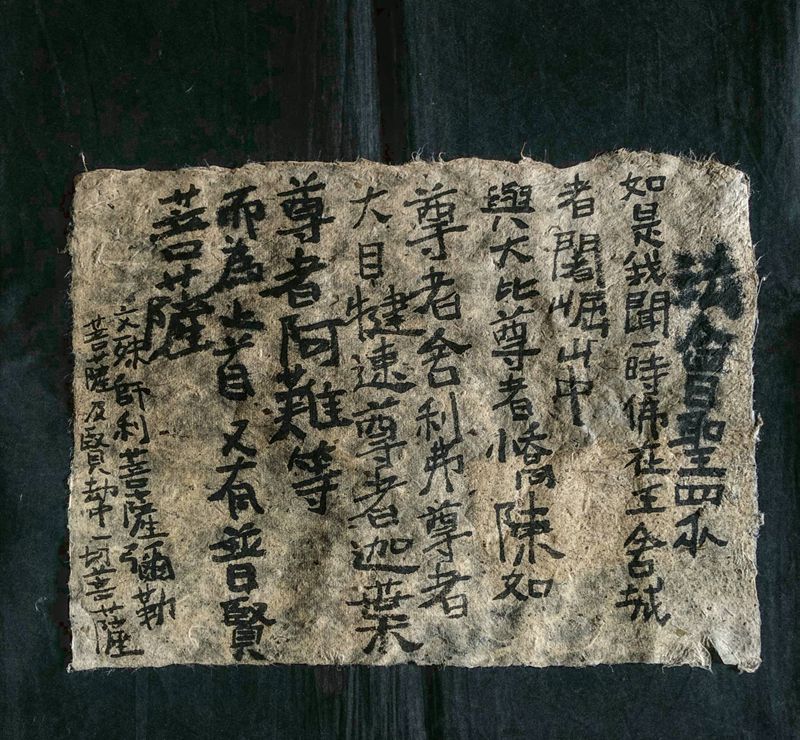 法會聖眾
如是我聞一時佛在王舍城
者闍崛山中
與大比尊者憍陳如
尊者舍利弗尊者
大目犍連尊者迦葉
尊者阿難等
而為上首又有普賢
菩薩
文殊師利菩薩彌勒
菩薩及賢劫中一切菩薩